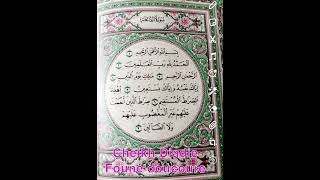 سورة الفاتحة
بسم الله الرحمن الرحيم
الحمد لله رب العلمين
الرحمن الرحيم ملك يوم الدين
إياك نعبد وإياك نستعين اهدنا
الصرط المستقيم صرط الذين أنعمت
عليهم غير المغضوب عليهم
ولا الضالين
Cheikh Diadie
Foune doucoure